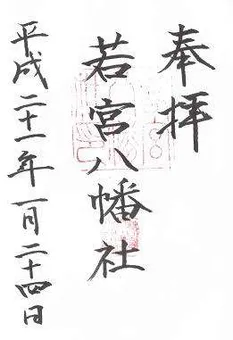 奉拝
若宮八幡社
平成二十一年一月二十四日